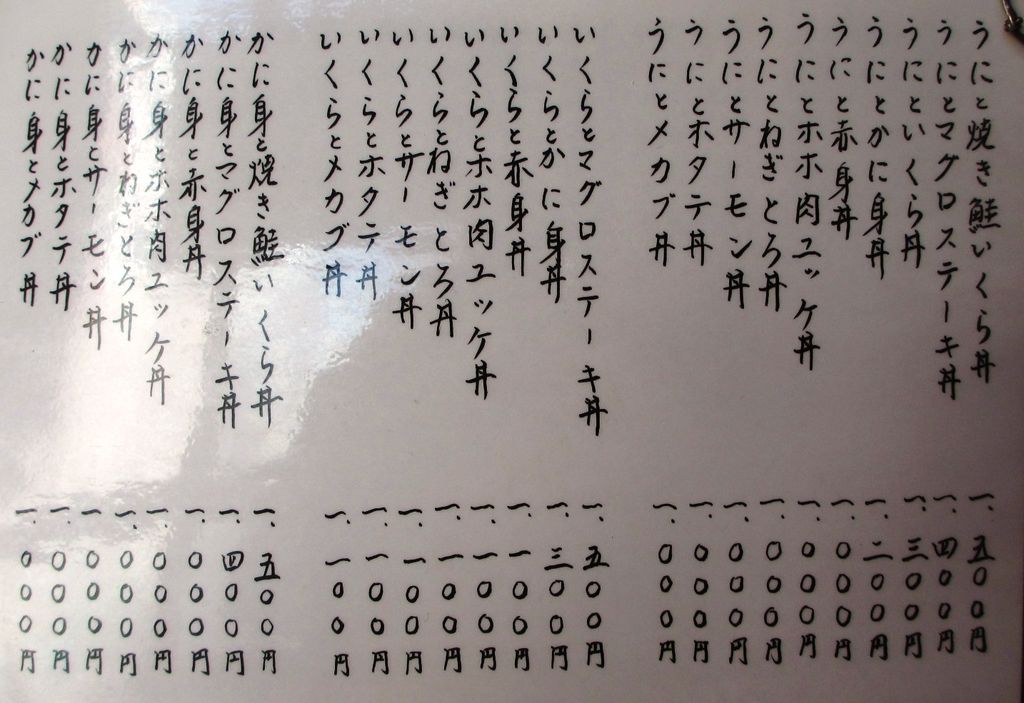 うにと焼き鮭いくら丼 一、五〇〇円
うにとマグロステーキ丼 一、四〇〇円
うにといくら丼 一、三〇〇円
うにとかに身丼 一、二〇〇円
うにと赤身丼 一、〇〇〇円
うにとホホ肉ユッケ丼 一、〇〇〇円
うにとねぎとろ丼 一、〇〇〇円
うにとサーモン丼 一、〇〇〇円
うにとホタテ丼 一、〇〇〇円
うにとメカブ丼 一、〇〇〇円
いくらとマグロステーキ丼 一、五〇〇円
いくらとかに身丼 一、三〇〇円
いくらと赤身丼 一、一〇〇円
いくらとホホ肉ユッケ丼 一、一〇〇円
いくらとねぎとろ丼 一、一〇〇円
いくらとサーモン丼 一、一〇〇円
いくらとホタテ丼 一、一〇〇円
いくらとメカブ丼 一、一〇〇円
かに身と焼き鮭いくら丼 一、五〇〇円
かに身とマグロステーキ丼 一、四〇〇円
かに身と赤身丼 一、〇〇〇円
かに身とホホ肉ユッケ丼 一、〇〇〇円
かに身とねぎとろ丼 一、〇〇〇円
かに身とサーモン丼 一、〇〇〇円
かに身とホタテ丼 一、〇〇〇円
かに身とメカブ丼 一、〇〇〇円